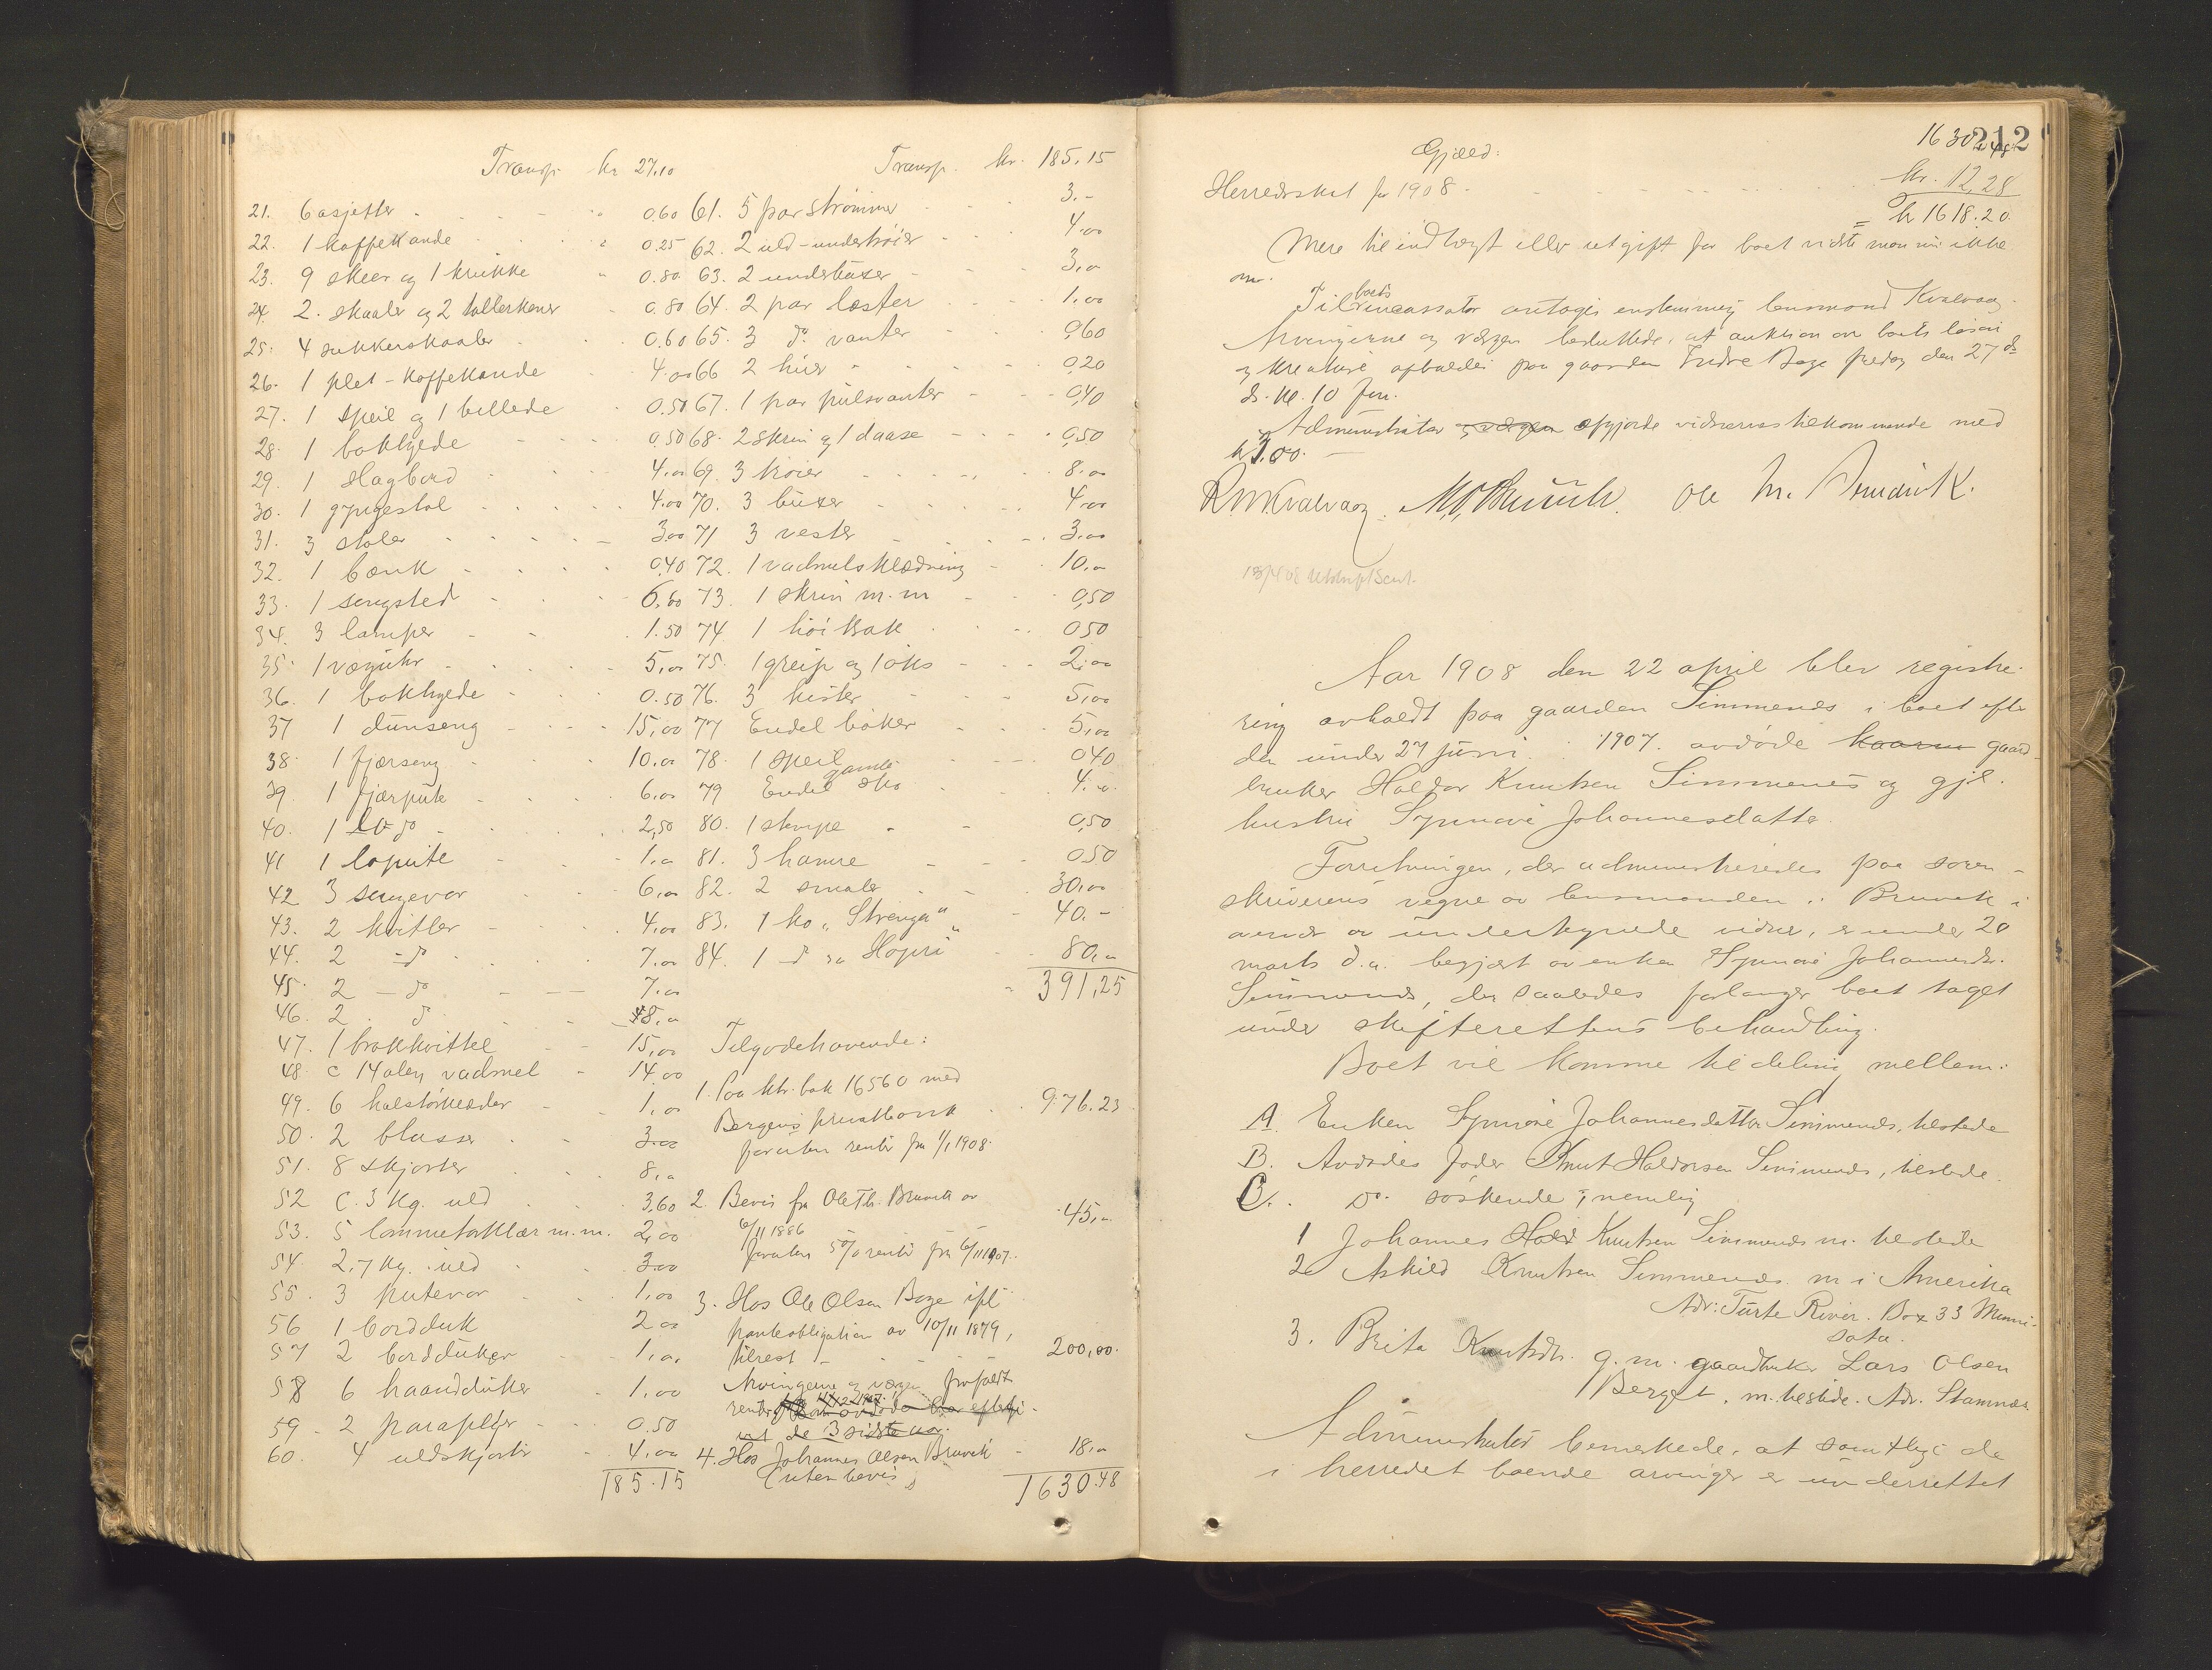 Transp. kr 27,10
21. 6 asjetter 0.60
22. 1 kaffekande 0.25
23. 9 skeer og 1 krukke 0.80
24. 2 skaaler og 2 tallerkener 0.80
25. 4 sukkerskaaler 0.60
26. 1 plet-kaffekande 4.00
27. 1 speil og 1 billede 0.50
28. 1 bokhyde 0,50
29. 1 slagbord 4.00
30. 1 gyngestol 4.00
31. 3 stoler 3.00
32. 1 bænk 0,40
33. 1 sengsted 6,00
34. 3 lamper 1.50
35. 1 væguhr 5,00
36. 1 bokhyde 0.50
37 1 dunseng 15,00
38. 1 fjærseng 10.00
39. 1 fjærpute 6,00
40. 1 do 2,50
41 1 lopute 1.00
42 3 sengevar 6,00
43. 2 kvitler 4,00
44. 2 - do 7.00
45. 2 - do 7.00
46. 2 do 8,00
47. 1 brokkvittel 15,00
48. c 14 alen vadmel 14.00
49. 6 halstørklæder 1,00
50. 2 blusser 3.00
51. 8 skjorter 8,00
52 C. 3 kg. uld 3,60
53. 5 lommetørklær m.m. 2,00
54 2,7 kg. uld 3.00
55. 3 putevar 1,00
56 1 bordduk 2.00
57 2 bordduker 1,00
58 6 haandduker 1,00
59 2 paraplyer 0.50
60. 4 uldskjorter 4,00
185.15
Transp. kr. 185.15
61. 5 par strømmer 3.-
62. 2 uld-undertrøier 4.00
63. 2 underbukser 3,00
64. 2 par læster 1,00
65. 3 do. vanter 0,60
66 2 huer 0,20
67. 1 par pulsvanter 0,40
68. 2 skrin og 1 daase 0,50
69. 3 trøier 8,00
70. 3 buxer 4,00
71 3 vester 3,00
72. 1 vadmelsklædning 10,00
73. 1 skrin m.m 0,50
74. 1 høikrak 0,50
75. 1 greip og 1 øks 2,00
76. 3 kister 5,00
77 Endel bøker 5,00
78. 1 speil 0,40
79 Endel gamle sko 4.00
80. 1 skrepe 0,50
81. 3 hamre 0,50
82. 2 smaler 30,00
83. 1 ko "Strenga" 40.-
84. 1 do "Hopri" 80,00
391,25
Tilgodehavende:
1. Paa ktr.bok 16560 med
Bergens privatbank 976.23
foruten renter fra 1/1 1908.
2. Bevis fra Ole Th. Bruvik av
6/11 1886 45,00
foruten 5% renter fra 6/11 1907.
3. Hos Ole Olsen Boge ifl.
panteobligation av 10/11 1879,
tilrest 200,00.
Arvingerne og vergen frafaldt
renter
ut de 3 sidste aar.
4. Hos Johannes Olsen Bruvik 18,00
(uten bevis)
1630.48
212
Gjæld: 1630.48
Herredsskat for 1908 kr. 12,28
= kr 1618.20
Mere til indtægt eller utgift for boet vidste man nu ikke
om.
Til boets incassator antoges enstemmig lensmand Kvalvaag.
Arvingerne og vergen besluttede, at auktion over boets løsøre
og kreaturer avholdes paa gaarden Indre Boge fredag den 27 ds
ds. kl. 10 fm.
Administrator og vergen opgjorde vidnernes tilkommende med
kr 1.00.
RMKvalvaag. M. O. Bruvik. Ole M.
Aar 1908 den 22 april blev registre-
ring avholdt paa gaarden Simmenes i boet efter
den under 27 juni 1907 avdøde gaard-
bruker Haldor Knutsen Simmenes og gjl.
hustru Synnøve Johannesdatter.
Forretningen, der administreredes paa soren-
skriverens vegne av lensmanden i Bruvik i
overvær av undertegnede vidner, er under 20
marts d.a. begjært av enken Synnøve Johannesdr.
Simmenes, der saaledes forlanger boet taget
under skifterettens behandling.
Boet vil komme til deling mellem:
A. Enken Synnøve Johannesdatter Simmenes, tilstede
B. Avdødes fader Knut Haldorsen Simmenes, tilstede.
C. Do. søskende, nemlig
1 Johannes Knutsen Simmenes m. tilstede
2 Askild Knutsen Simmenes m i Amerika
Adr: Turte River. Box 33 Minni-
sota.
3. Brita Knutsdr. g. m. gaardbruker Lars Olsen
Berget, m. tilstede. Adr. Stamnæs.
Administrator bemerkede, at samtlige de
i herredet boende arvinger er underrettet